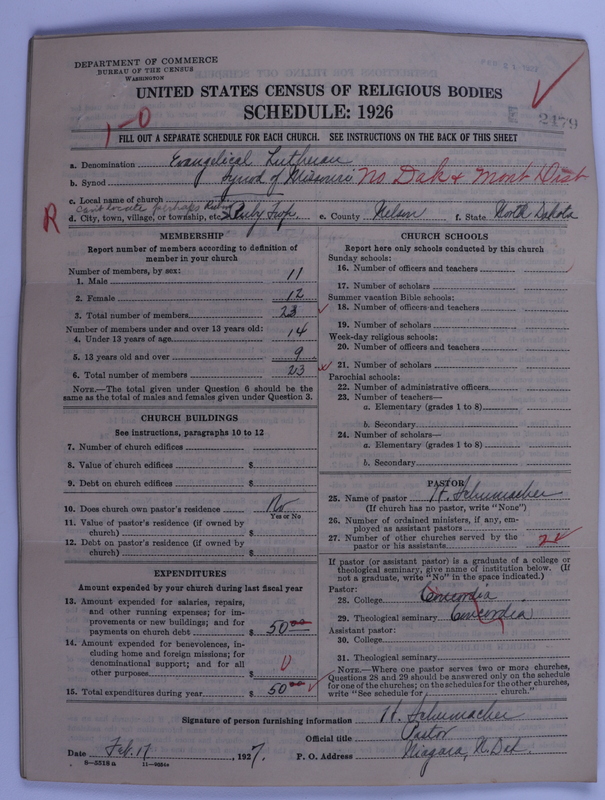 DEPARTMENT OF COMMERCE
BUREAU OF THE CENSUS
WASHINGTON
UNITED STATES CENSUS OF RELIGIOUS BODIES
SCHEDULE: 1926
E 2179
1-0
FILL OUT A SEPARATE SCHEDULE FOR EACH CHURCH. SEE INSTRUCTIONS ON THE BACK OF THIS SHEET
a. Denomination Evangelical Lutheran
b. Synod Synod of Missouri No Dak & Mont Dist
c. Local name of church
Cant locate perhaps Rubin
R d. City, town, village, or township, etc. Ruby Twp. e. County Nelson f. State North Dakota
MEMBERSHIP
Report number of members according to definition of
member in your church
Number of members, by sex:
1. Male 11
2. Female 12
3. Total number of members 23
Number of members under and over 13 years old:
4. Under 13 years of age 14
5. 13 years old and over 9
6. Total number of members 23
NOTE.—The total given under Question 6 should be
same as the total of males and females given under Question 3.
CHURCH BUILDINGS
See instructions, paragraphs 10 to 12
7. Number of church edifices
8. Value of church edifices $
9. Debt on church edifices $
10. Does church own pastor's residence No
Yes or No
11. Value of pastor's residence (if owned by
church) $
12. Debt on pastor's residence (if owned by
church) $
EXPENDITURES
Amount expended by your church during last fiscal year
13. Amount expended for salaries, repairs,
and other running expenses; for im-
provements or new buildings; and for
payments on church debt $ 50.00
14. Amount expended for benevolences, in-
cluding home and foreign missions; for
denominational support; and for all
other purposes $ 0
15. Total expenditures during year $ 50.00
CHURCH SCHOOLS
Report here only schools conducted by this church
Sunday schools:
16. Number of officers and teachers
17. Number of scholars
Summer vacation Bible schools:
18. Number of officers and teachers
19. Number of scholars
Week-day religious schools:
20. Number of officers and teachers
21. Number of scholars
Parochial schools:
22. Number of administrative officers
23. Number of teachers—
a. Elementary (grades 1 to 8)
b. Secondary
24. Number of scholars—
a. Elementary (grades 1 to 8)
b. Secondary
PASTOR
25. Name of pastor H. Schumacher
(If church has no pastor, write "None")
26. Number of ordained ministers, if any, em-
ployed as assistant pastors
27. Number of other churches served by the
pastor or his assistants 2
If pastor (or assistant pastor) is a graduate of a college or
theological seminary, give name of institution below. (If
not a graduate, write "No" in the space indicated.)
Pastor:
28. College Concordia
29. Theological seminary Concordia
Assistant pastor:
30. College
31. Theological seminary
NOTE.—Where one pastor serves two or more churches,
Questions 28 and 29 should be answered only on the schedule
for one of the churches; on the schedules for the other churches,
write "See schedule for church."
Signature of person furnishing information H. Schumacher
Official title Pastor
Date Feb. 17, 1927. P. O. Address Niagara, N. Dak.
8-5518 a